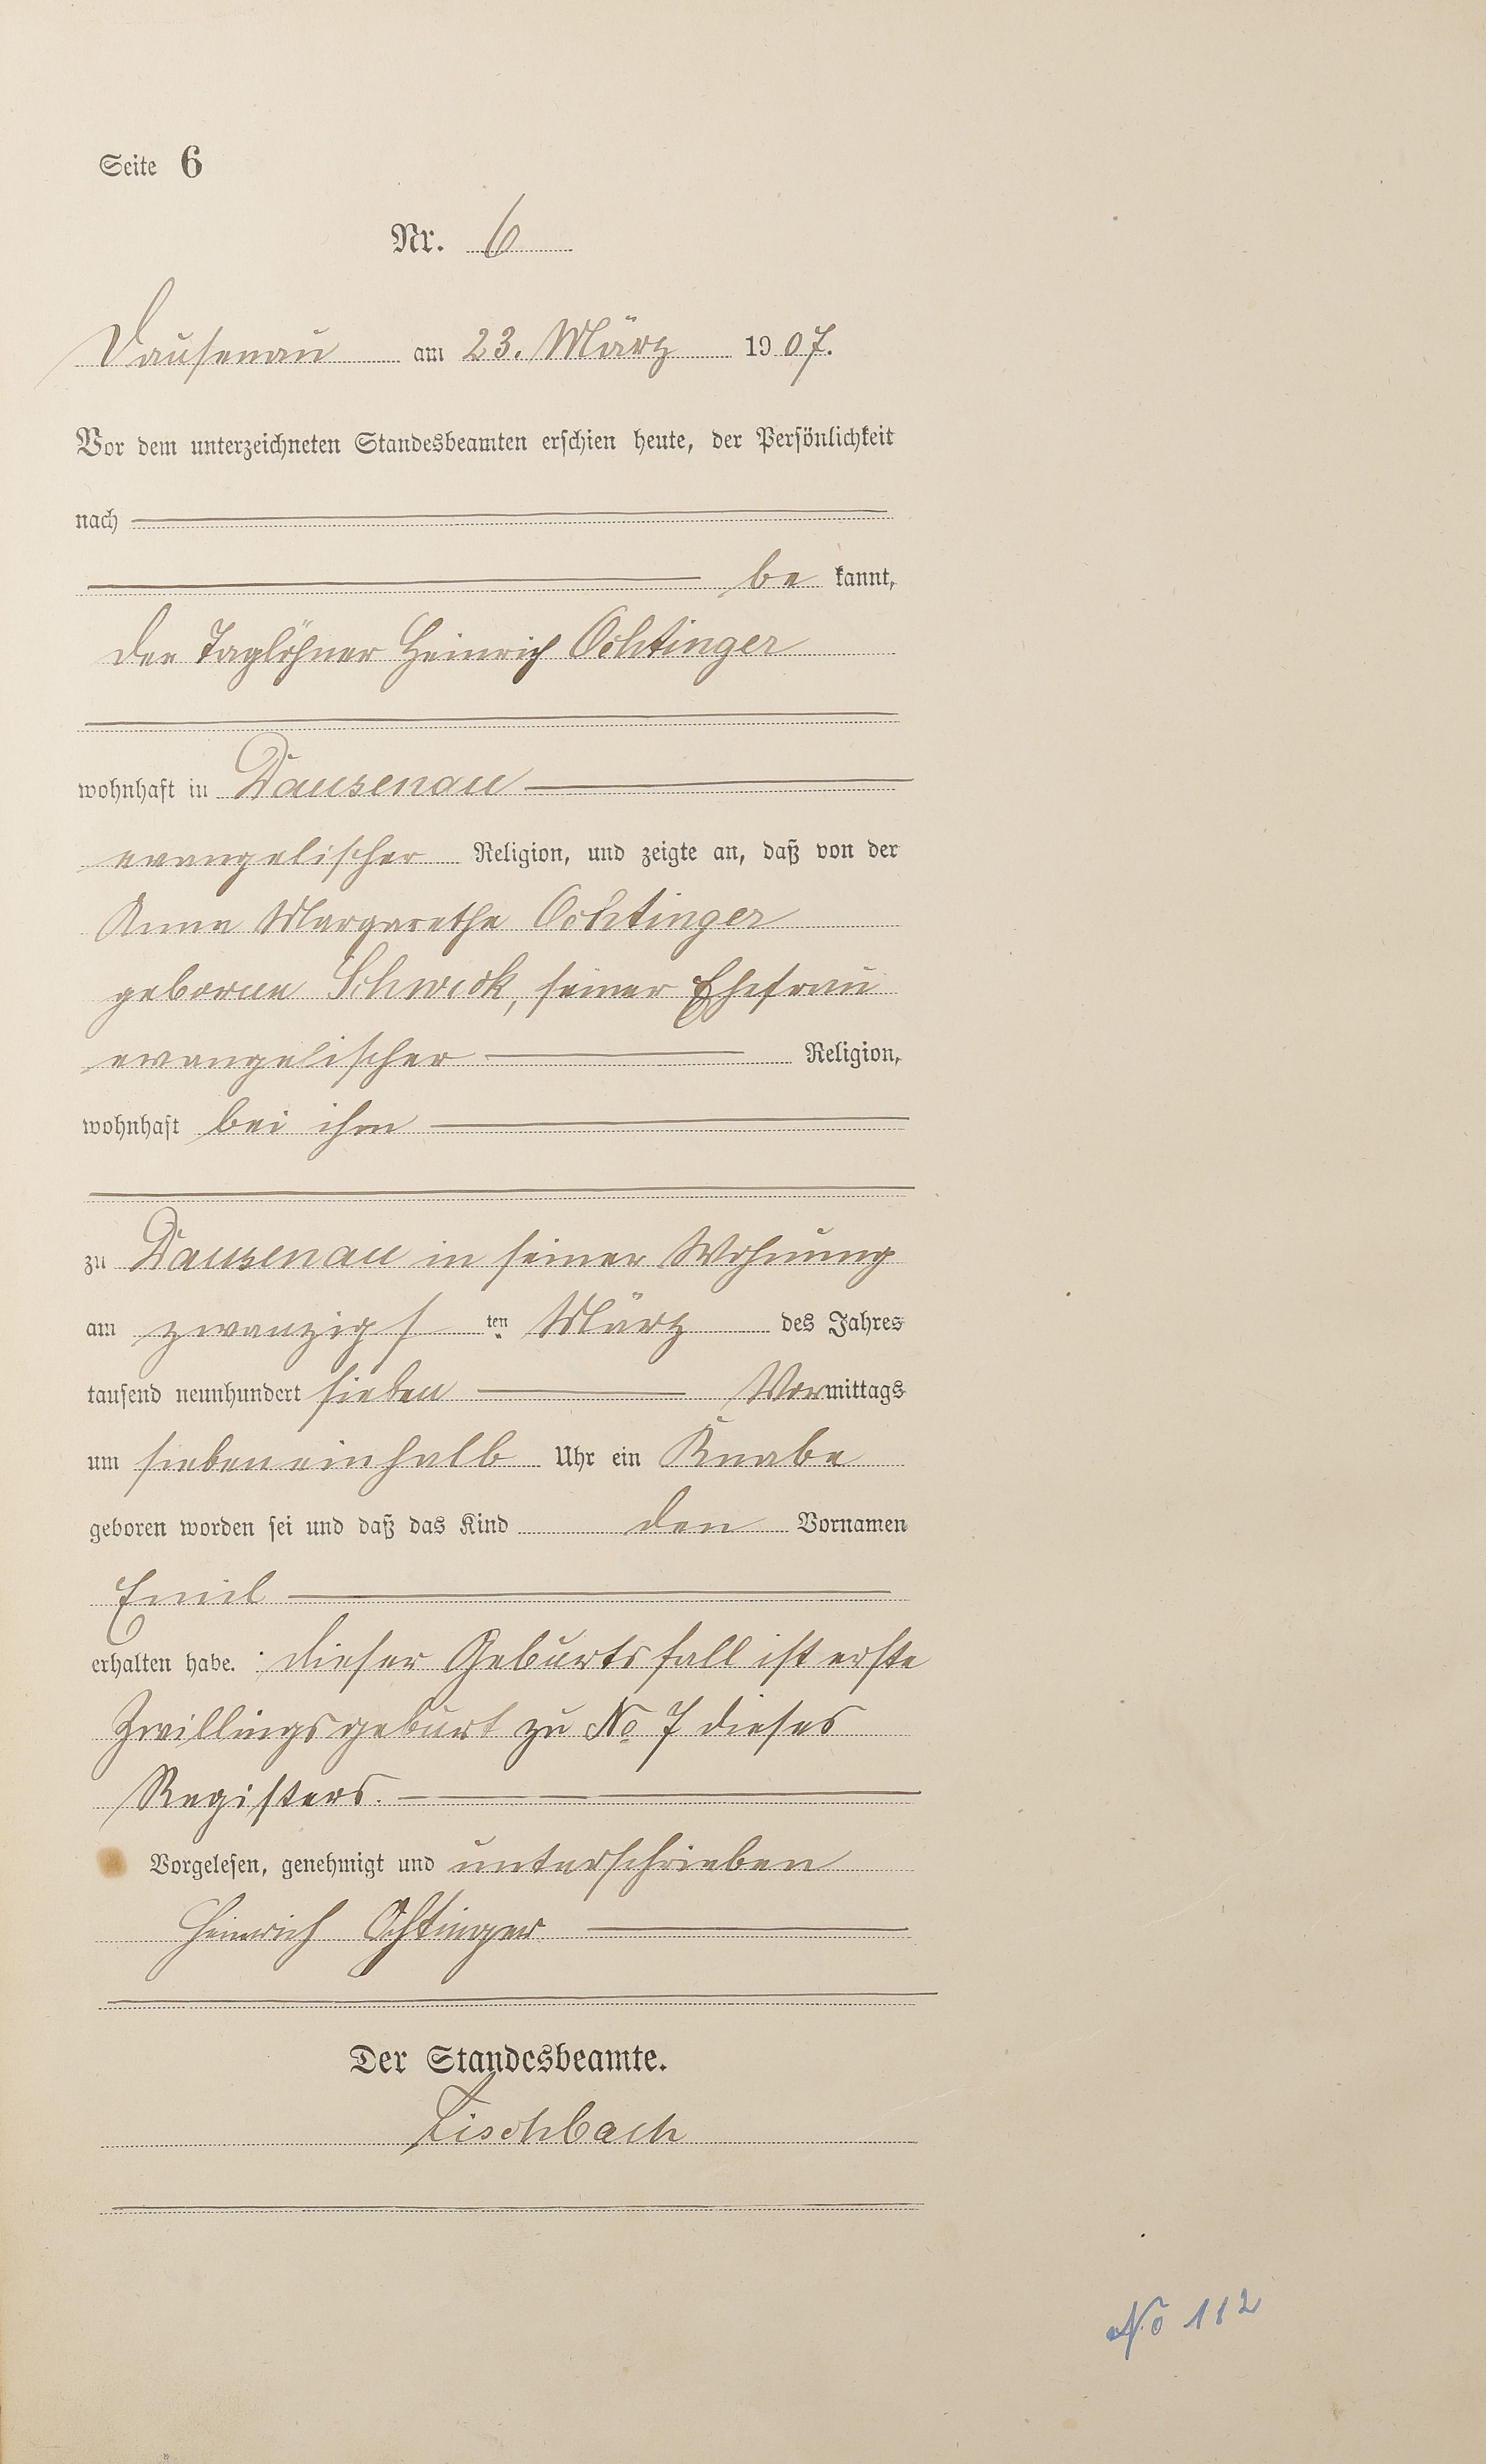 Seite 6
Nr. 6
Dausenau am 23. März 1907.
Vor dem unterzeichneten Standesbeamten erschien heute, der Persönlichkeit
nach
be kannt,
der Taglöhner Heinrich Ochtinger
wohnhaft in Dausenau
evangelischer Religion, und zeigte an, daß von der
Anna Margarethe Ochtinger
geborne Schwick, seiner Ehefrau
evangelischer Religion,
wohnhaft bei ihm
zu Dausenau in seiner Wohnung
am zwanzigsten März des Jahres
tausend neunhundert sieben Vormittags
um siebeneinhalb Uhr ein Knabe
geboren worden sei und daß das Kind den Vornamen
Emil
erhalten habe. Dieser Geburtsfall ist erste
Zwillingsgeburt zu No 7 dieses
Registers.
Vorgelesen, genehmigt und unterschrieben
Heinrich Ochtinger
Der Standesbeamte.
Fischbach
No 112